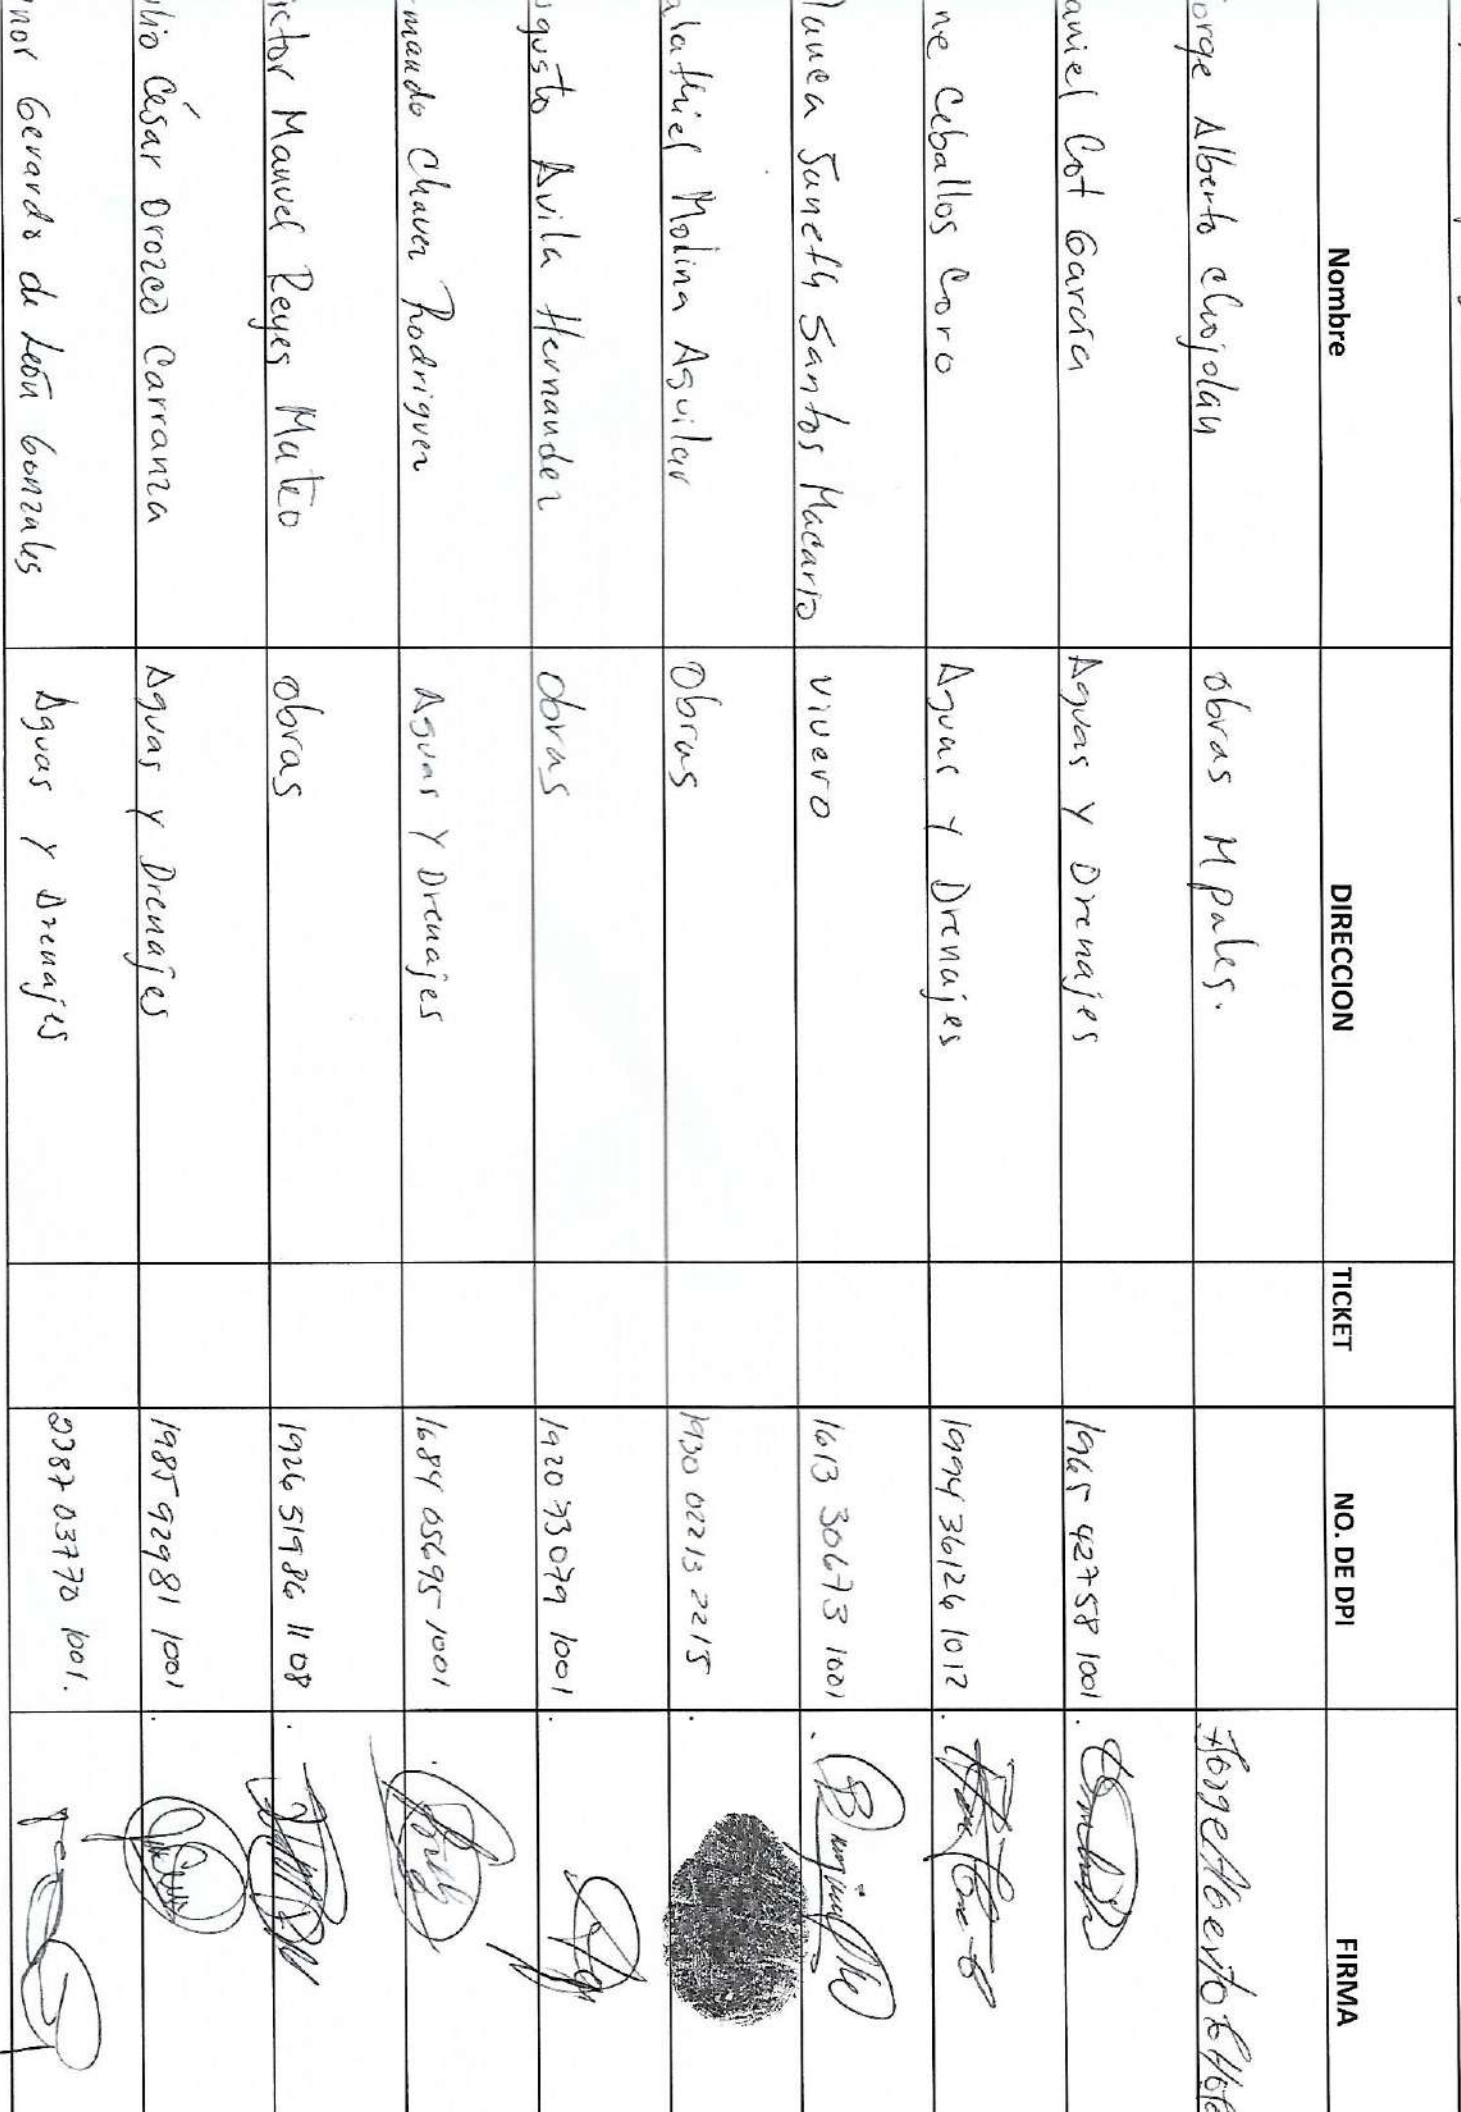 Nombre DIRECCION TICKET NO. DE DPI FIRMA
orge Alberto Chojolán obras Mpales.
aniel Cot García Aguas Y Drenajes 1965 42758 1001
ne Ceballos Coro Aguas Y Drenajes 1994 36126 1012
lanca Janeth Santos Macario vivero 1613 30673 1001
alathiel Molina Aguilar Obras 1930 02213 2215
ugusto Avila Hernandez obras 1920 33079 1001
mando Chavez Rodriguez Aguas Y Drenajes 1684 05695 1001
ictor Manuel Reyes Mateo obras 1926 51986 1108
ulio César Orozco Carranza Aguas y Drenajes 1985 92981 1001
nor Gerardo de León Gonzales Aguas y Drenajes 2387 03770 1001.